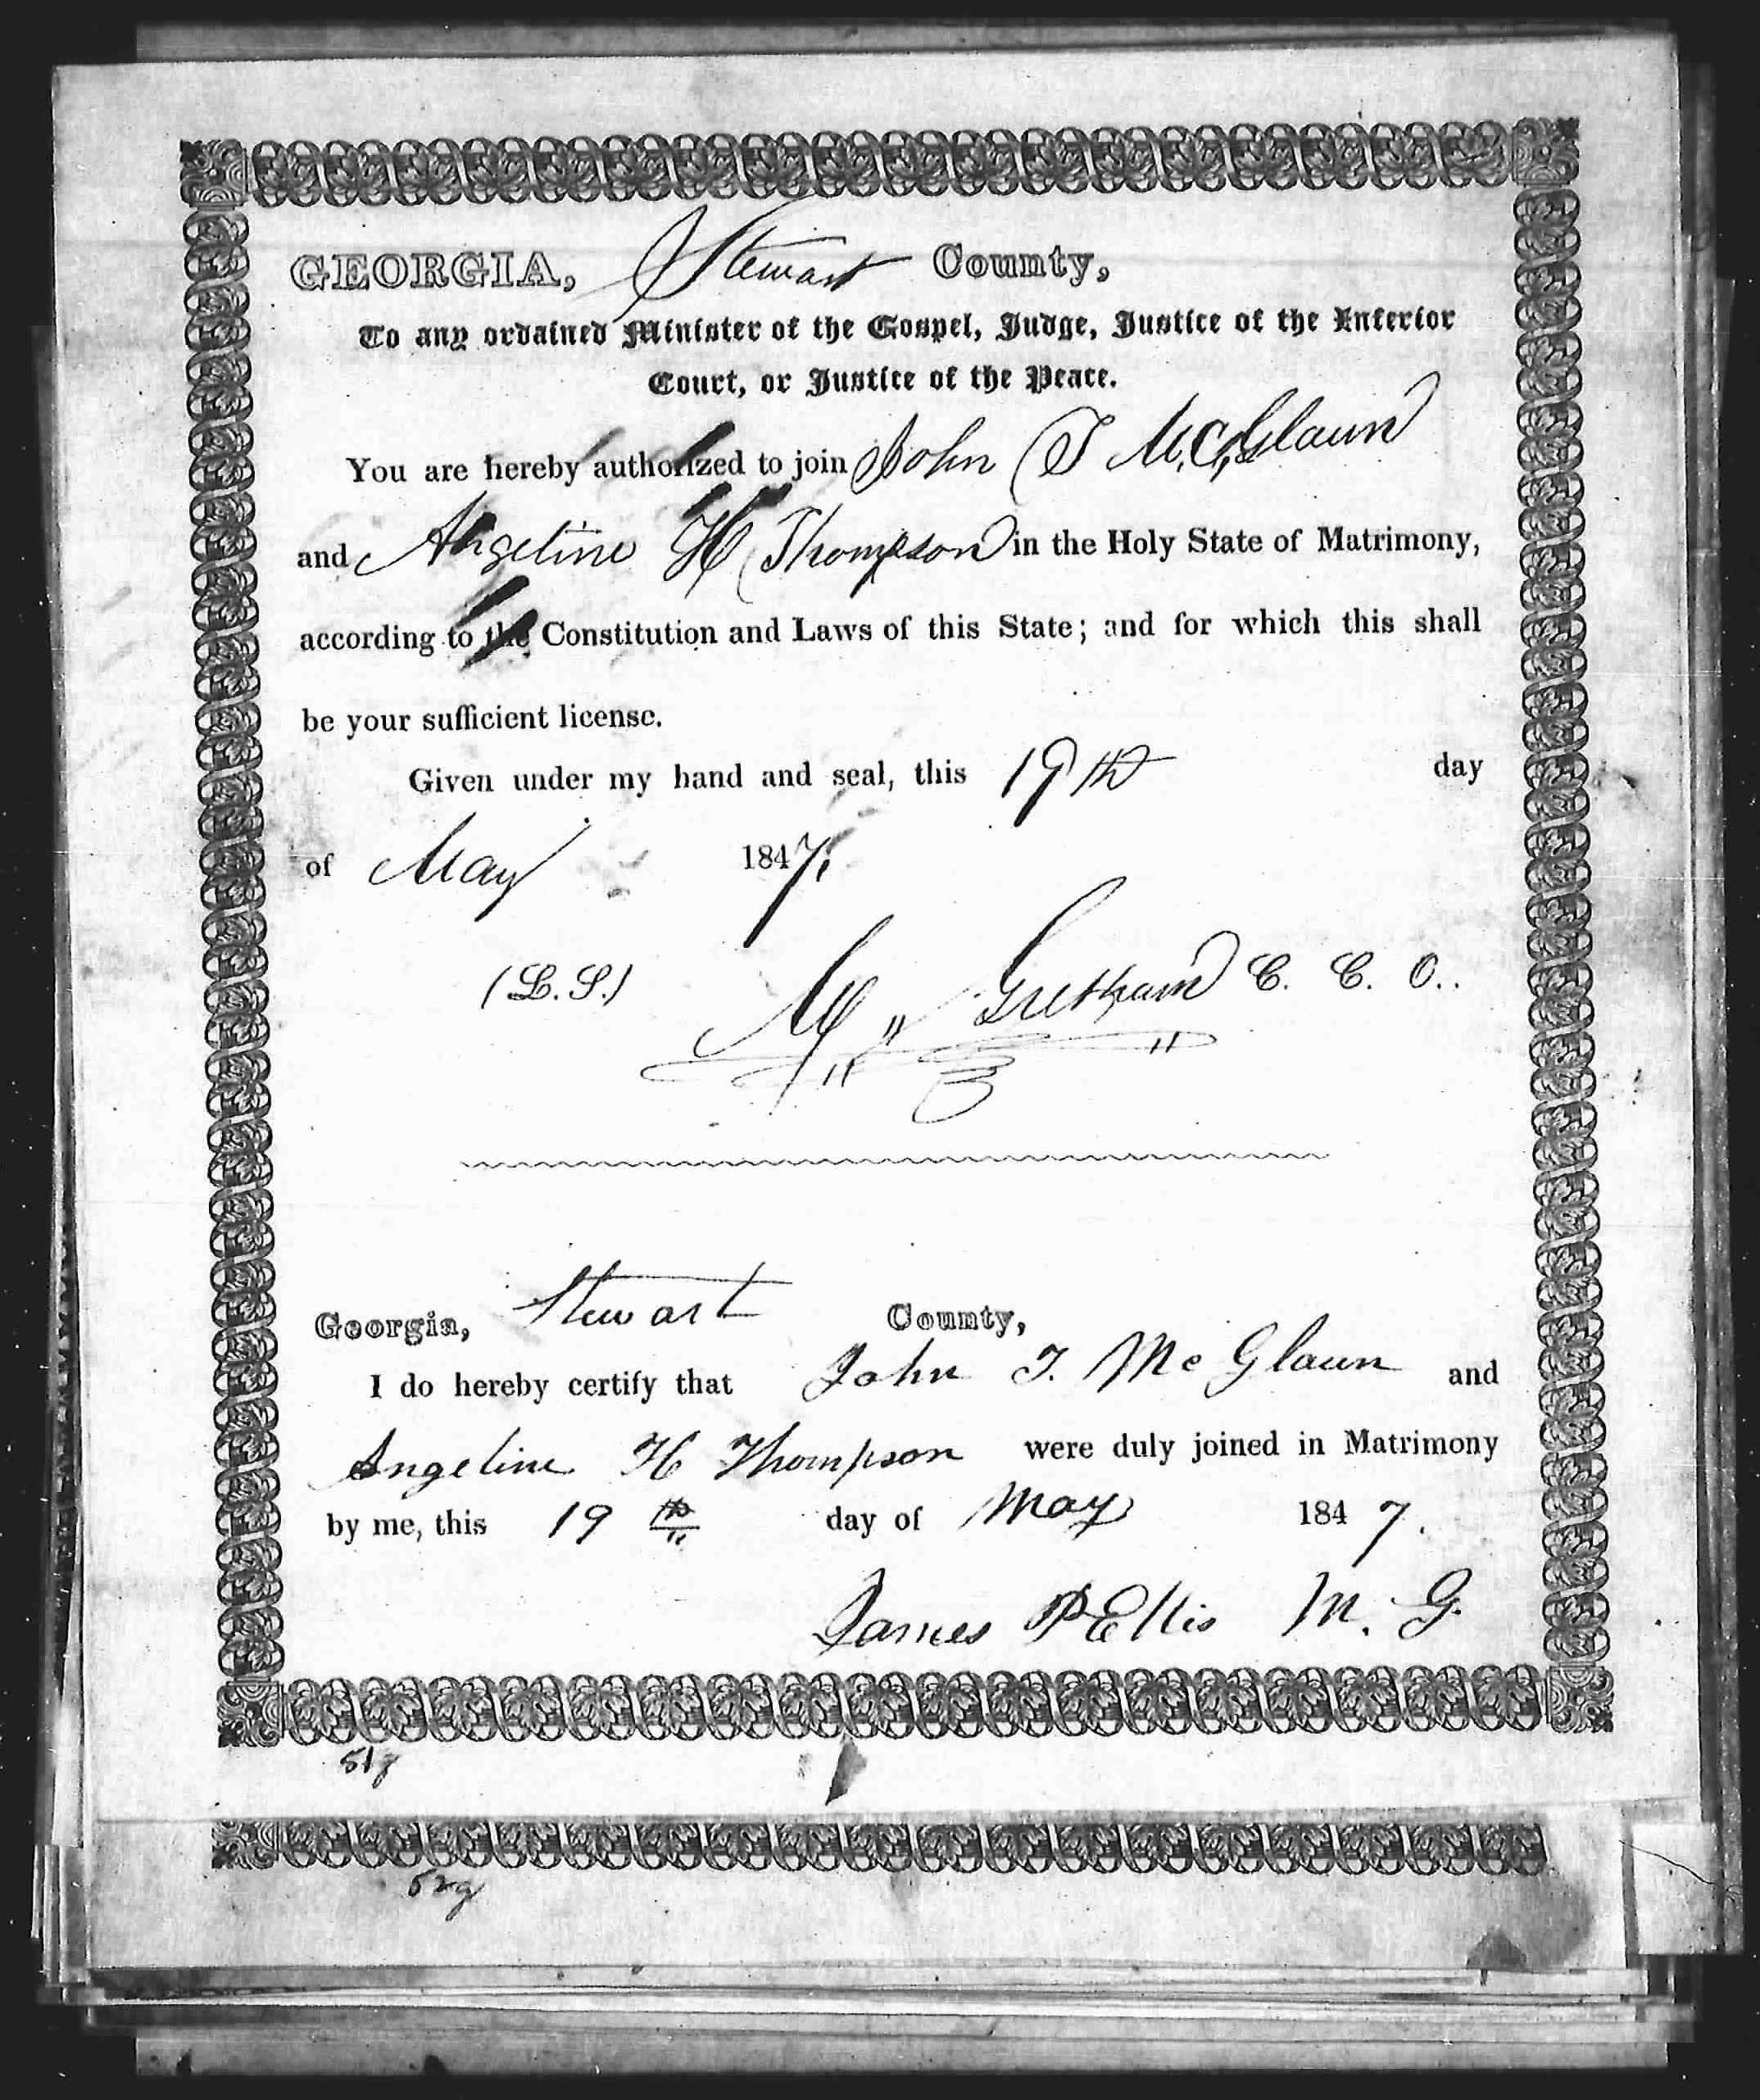 GEORGIA, Stewart County,
To any ordained Minister of the Gospel, Judge, Justice of the Inferior
Court, or Justice of the Peace.
You are hereby authorized to join John T McGlaun
and Angeline H Thompson in the Holy State of Matrimony,
according to the Constitution and Laws of this State; and for which this shall
be your sufficient license.
Given under my hand and seal, this 19th day
of May 1847.
(L. S.) M Gresham C. C. O.
Georgia, Stewart County,
I do hereby certify that John T. McGlaun and
Angeline H Thompson were duly joined in Matrimony
by me, this 19th day of May 1847.
James P Ellis M. G.
51g
52g